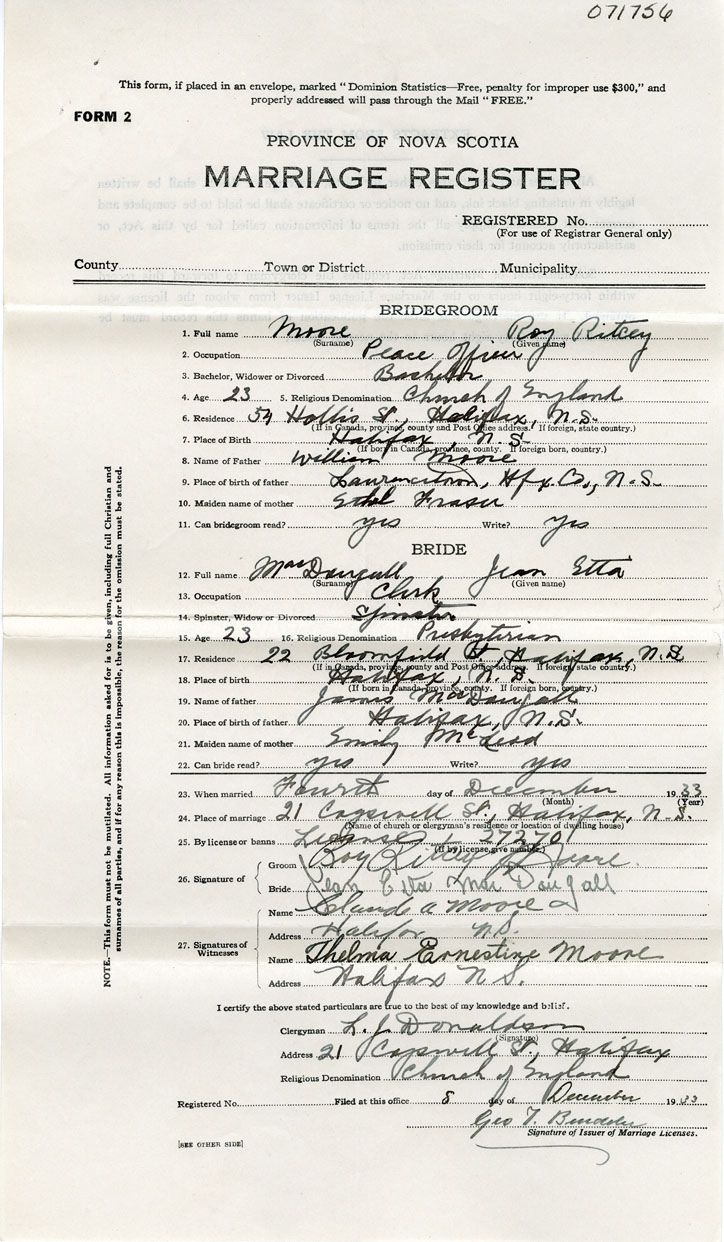 071756
This form, if placed in an envelope, marked "Dominion Statistics—Free, penalty for improper use $300," and
properly addressed will pass through the Mail "FREE."
FORM 2
PROVINCE OF NOVA SCOTIA
MARRIAGE REGISTER
REGISTERED No.
(For use of Registrar General only)
County Town or District Municipality
BRIDEGROOM
1. Full name Moore Roy Ritcey
(Surname) (Given name)
2. Occupation Peace Officer
3. Bachelor, Widower or Divorced Bachelor
4. Age 23 5. Religious Denomination Church of England
6. Residence 54 Hollis St., Halifax, N.S.
(If in Canada, province, county and Post Office address. If foreign, state country.)
7. Place of Birth Halifax, N.S.
(If born in Canada, province, county. If foreign born, country.)
8. Name of Father William Moore
9. Place of birth of father Lawrencetown, Hfx. Co., N.S.
10. Maiden name of mother Ethel Fraser
11. Can bridegroom read? yes Write? yes
BRIDE
12. Full name MacDougall Jean Etta
(Surname) (Given name)
13. Occupation Clerk
14. Spinster, Widow or Divorced Spinster
15. Age 23 16. Religious Denomination Presbyterian
17. Residence 22 Bloomfield St, Halifax, N.S.
(If in Canada, province, county and Post Office address. If foreign, state country.)
18. Place of birth Halifax, N.S.
(If born in Canada, province, county. If foreign born, country.)
19. Name of father James MacDougall
20. Place of birth of father Halifax, N.S.
21. Maiden name of mother Emily McLeod
22. Can bride read? yes Write? yes
23. When married Fourth day of December 1933
(Month) (Year)
24. Place of marriage 21 Cogswell St., Halifax, N.S.
(Name of church or clergyman's residence or location of dwelling house)
25. By license or banns License - 37270
(If by license, give number)
26. Signature of
Groom Roy Ritcey Moore.
Bride Jean Etta MacDougall
27. Signatures of Witnesses
Name Claude A Moore
Address Halifax N.S.
Name Thelma Ernestine Moore
Address Halifax N.S.
I certify the above stated particulars are true to the best of my knowledge and belief.
Clergyman L. J. Donaldson
(Signature)
Address 21 Cogswell St, Halifax
Religious Denomination Church of England
Registered No. Filed at this office 8 day of December 1933
Geo T.
Signature of Issuer of Marriage Licenses.
[SEE OTHER SIDE]
NOTE.—This form must not be mutilated. All information asked for is to be given, including full Christian and
surnames of all parties, and if for any reason this is impossible, the reason for the omission must be stated.